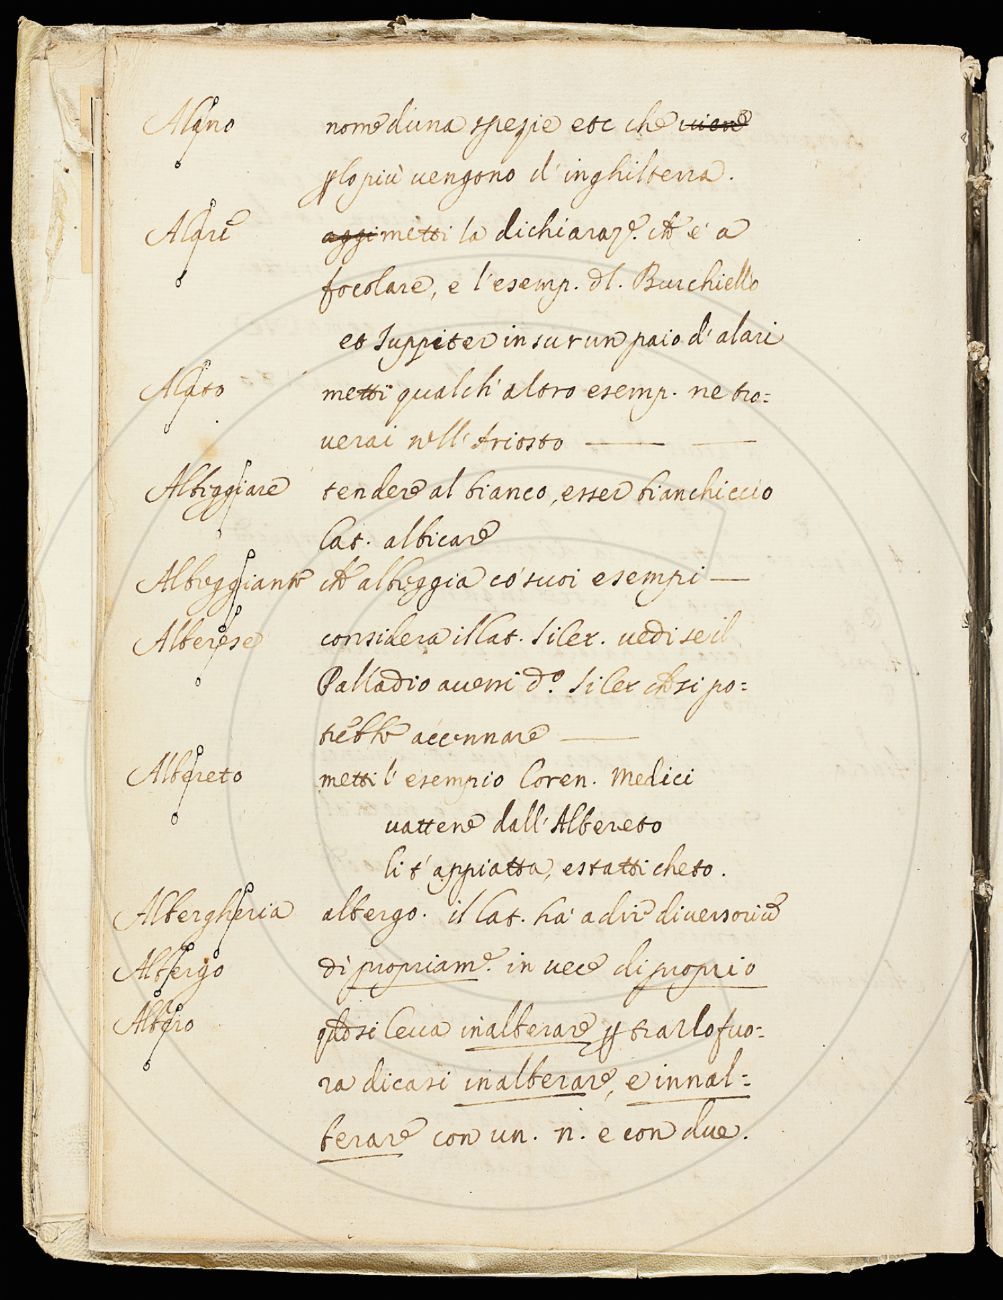 Alano nome diuna spezie etc che uiene
p lo più uengono d'inghilterra.
Alare aggi metti la dichiaraz.e ch'è a
focolare, e l'esemp. dl. Burchiello
et Iuppiter in sur un paio d'alari
Alato metti qualch'altro esemp. ne tro=
uerai nell'Ariosto
Albeggiare tendere al bianco, esser bianchiccio
Lat. albicare
Albeggiante che albeggia co' suoi esempi
Alberese considera il Lat. Silex. uedi se il
Palladio auerri d.o Silex che si po=
trebbe accennare
Albereto metti l'esempio Loren. Medici
uattene dall'Albereto
li t'appiatta, e statti cheto.
Albergheria albergo. il Lat. ha' a dire diuersoriu
Albergo di propriam.e in uece di proprio
Albero qdo si leua inalberare p trarlo fuo=
ra dicasi inalberare, e innal=
berare con un. n. e con due.